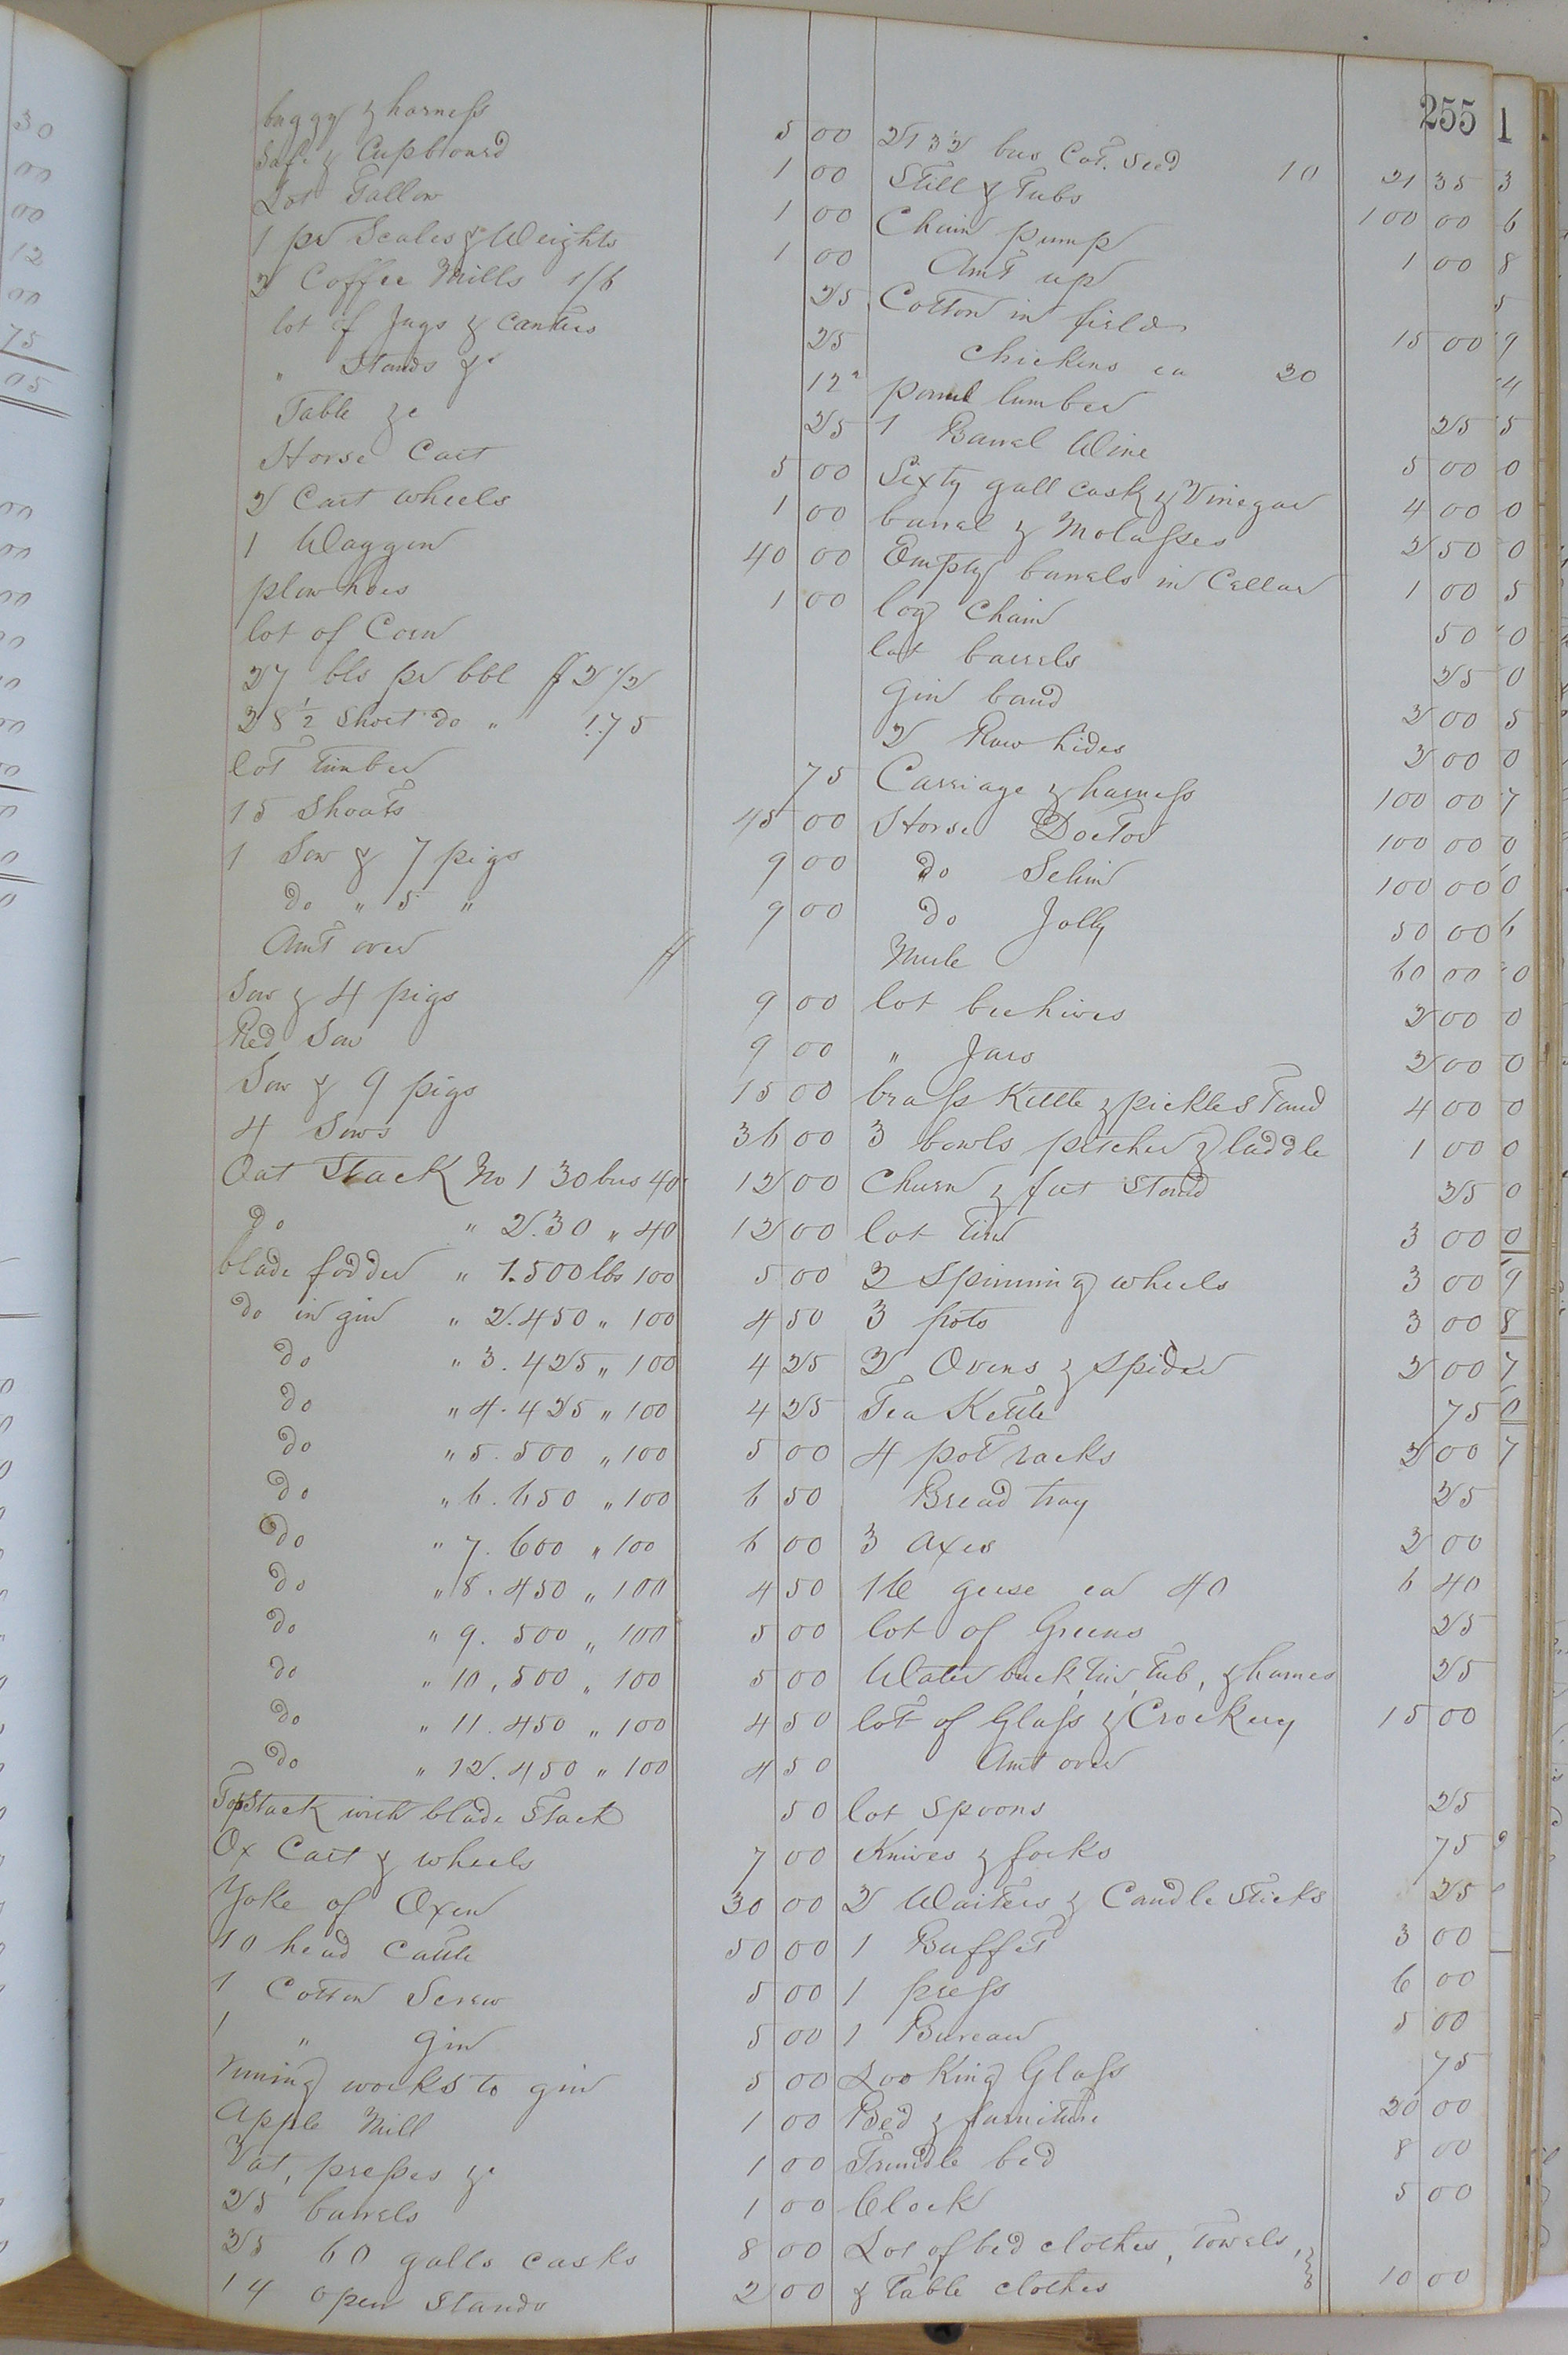 255
buggy & harness 5 00
Safe & Cupboard 1 00
Lot Tallow 1 00
1 pr Scales & Weights 1 00
2 Coffee Mills 1/6 25
lot of Jugs & Canters 25
" Stands &c 12
Table &c 25
Horse Cart 5 00
2 Cart wheels 1 00
1 Waggon 40 00
plow hoes 1 00
lot of Corn
27 bls pr bbl $2 1/2
28 1/2 Short do " 1.75
lot timber 75
15 Shoats 45 00
1 Sow & 7 pigs 9 00
do " 5 " 9 00
Amt over
Sow & 4 pigs 9 00
Red Sow 9 00
Sow & 9 pigs 15 00
4 Sows 36 00
Oat Stack No 1 30 bus 40 12 00
do " 2. 30 " 40 12 00
blade fodder " 1. 500 lbs 100 5 00
do in gin " 2. 450 " 100 4 50
do " 3. 425 " 100 4 25
do " 4. 425 " 100 4 25
do " 5. 500 " 100 5 00
do " 6. 650 " 100 6 50
do " 7. 600 " 100 6 00
do " 8. 450 " 100 4 50
do " 9. 500 " 100 5 00
do " 10. 500 " 100 5 00
do " 11. 450 " 100 4 50
do " 12. 450 " 100 4 50
Top Stack with blade Stack 50
Ox Cart & wheels 7 00
Yoke of Oxen 30 00
10 head Cattle 50 00
1 Cotton Screw 5 00
1 " Gin 5 00
runing works to gin 5 00
Apple Mill 1 00
Vat, presses &c 1 00
25 barrels 1 00
25 60 galls casks 8 00
14 open Stands 2 00
213 1/2 bus Cot. Seed 10 21 35
Still & Tubs 100 00
Chain pump 1 00
Amt up
Cotton in field 15 00
chickens ea 20
parcel lumber 25
1 Barrel Wine 5 00
Sixty gall cask & Vinegar 4 00
barrel & Molasses 2 50
Empty barrels in Cellar 1 00
log Chain 50
lot barrels 25
Gin band 2 00
2 Raw hides 2 00
Carriage & harness 100 00
Horse Doctor 100 00
do Selim 100 00
do Jolly 50 00
Mule 60 00
lot beehives 2 00
" Jars 2 00
brass Kettle & pickle Stand 4 00
3 bowls pitcher & laddle 1 00
Churn & fat Stand 25
lot tin 3 00
2 Spinning wheels 3 00
3 pots 3 00
2 Ovens & Spider 2 00
Tea Kettle 75
4 pot racks 2 00
Bread tray 25
3 axes 2 00
16 geese ea 40 6 40
lot of Greens 25
Water buck, tin, tub, & hames 25
lot of Glass & Crockery 15 00
Amt over
lot Spoons 25
Knives & forks 75
2 Waiters & Candle Sticks 25
1 Buffet 3 00
1 press 6 00
1 Bureau 5 00
Looking Glass 75
Bed & furniture 20 00
Trundle bed 8 00
Clock 5 00
Lot of bed clothes, Towels,
& Table clothes 10 00